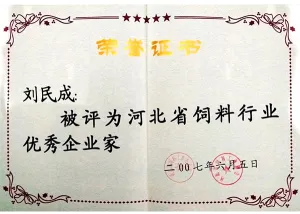 荣誉证书
刘民成:
被评为河北省饲料行业
优秀企业家
二00七年六月五日